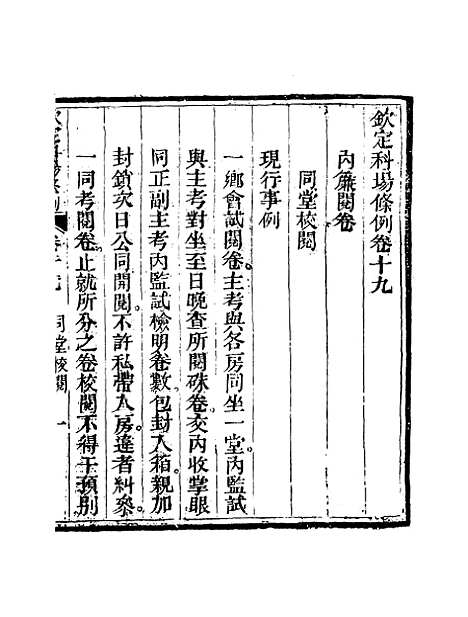 欽定科場條例卷十九
內簾閱卷
同堂校閱
現行事例
一鄉會試閱卷主考與各房同坐一堂內監試
與主考對坐至日晚查所閱硃卷交內收掌眼
同正副主考內監試檢明卷數包封入箱親加
封鎖次日公同開閱不許私帶入房違者糾參
一同考閱卷止就所分之卷校閱不得干預別
欽定科場條例 卷十九 同堂校閱 一